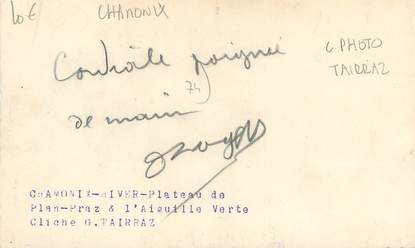 10€
CHAMONIX
C PHOTO
TAIRRAZ
Contrôle poignée
74
de main
CHAMONIX-HIVER-Plateau de
Plan-Praz & l'Aiguille Verte
Cliche G.TAIRRAZ